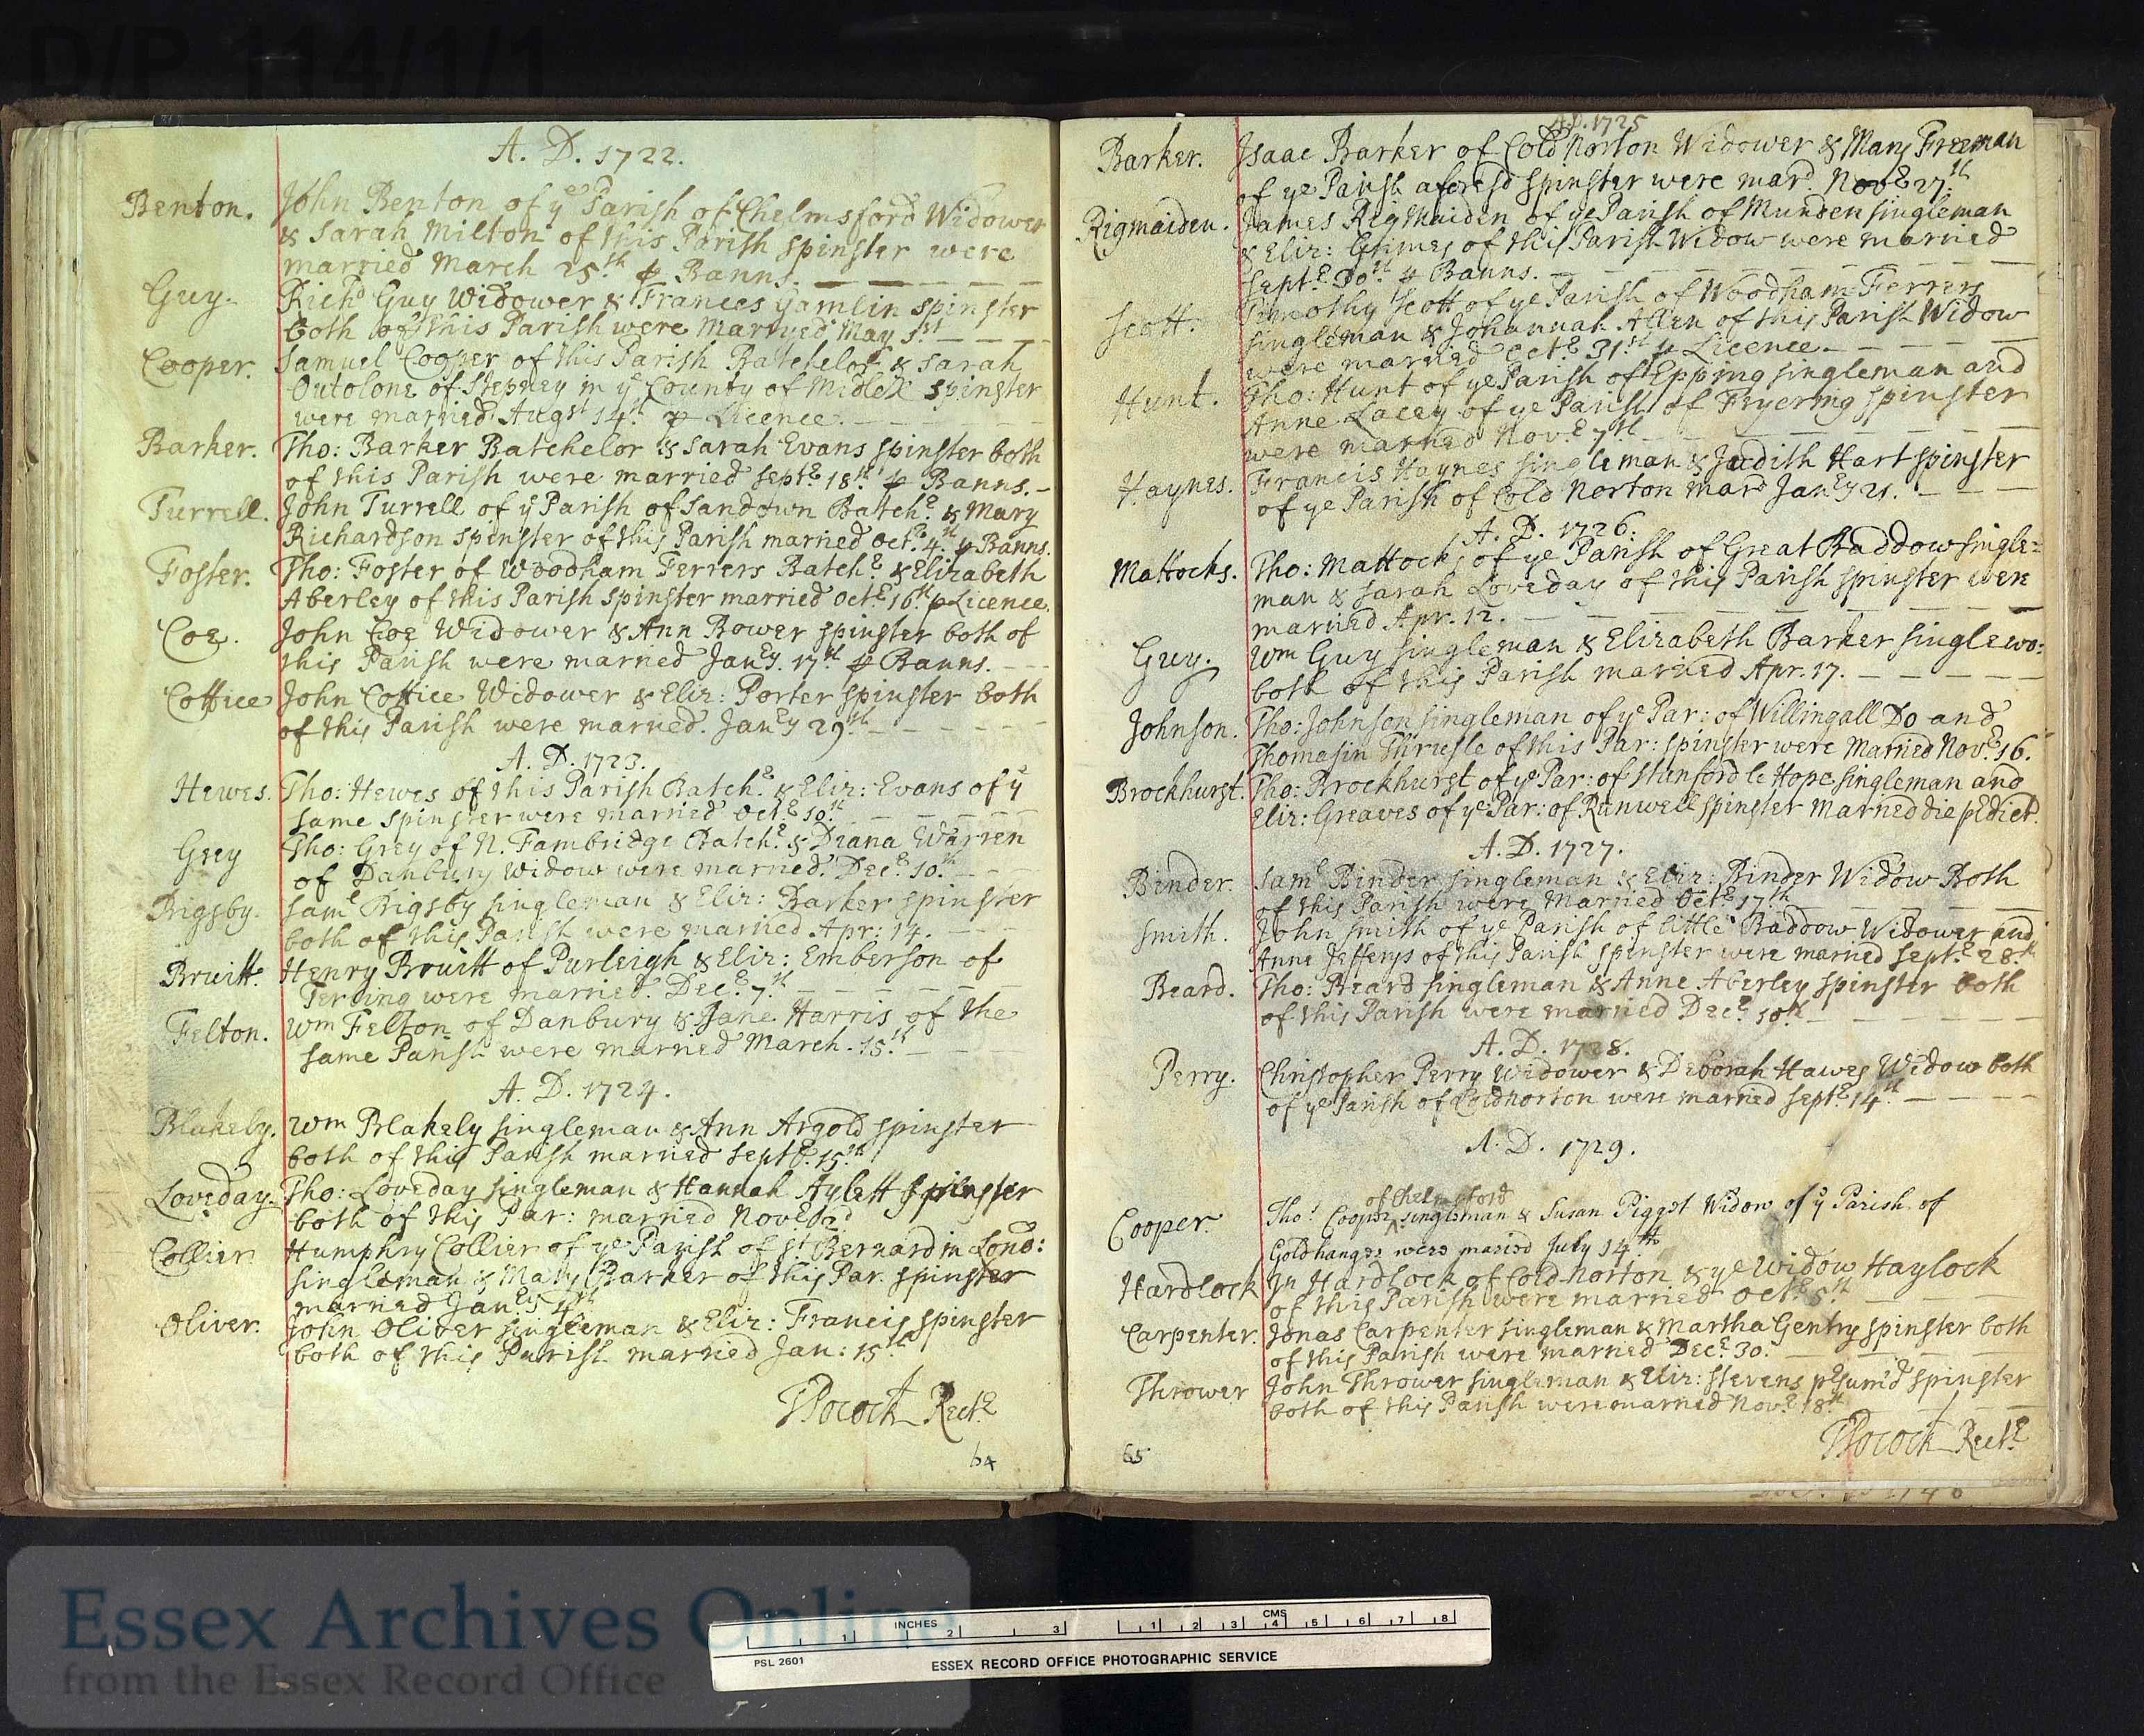 D/P 114/1/1
A. D. 1722.
Benton. John Benton of ye Parish of Chelmsford Widower
& Sarah Milton of this Parish Spinster were
married March 25th p Banns.
Guy. Richd Guy Widower & Frances Yamlin Spinster
both of this Parish were Marryed May 1st
Cooper. Samuel Cooper of this Parish Batchelor & Sarah
Outolone of Stepney in ye County of Midlex Spinster
were married Augst 14th p Licence.
Barker. Tho: Barker Batchelor & Sarah Evans Spinster both
of this Parish were married Septr 18th p Banns.
Turrell. John Turrell of ye Parish of Sandown Batchr & Mary
Richardson Spinster of this Parish married Octr 4th p Banns.
Foster. Tho: Foster of Woodham Ferrers Batchr & Elizabeth
Aberley of this Parish Spinster married Octr 16th p Licence.
Coe. John Coe Widower & Ann Bower Spinster both of
this Parish were married Janry 17th p Banns.
Cottice John Cottice Widower & Eliz: Porter Spinster both
of this Parish were married. Janry 29th
A. D. 1723.
Hewes. Tho: Hewes of this Parish Batchr & Eliz: Evans of ye
same Spinster were married Octr 10th
Grey Tho: Grey of N. Fambridge Batchr & Diana Warren
of Danbury Widow were married. Decr 10th
Brigsby. Saml Brigsby Singleman & Eliz: Barker Spinster
both of this Parish were married Apr: 14.
Bruitt. Henry Bruitt of Purleigh & Eliz: Emberson of
Terling were married. Decr 7th
Felton. Wm Felton of Danbury & Jane Harris of the
same Parish were married March. 15th
A. D. 1724.
Blakely. Wm Blakely Singleman & Ann Argold Spinster
both of this Parish married Septr 15th
Loveday. Tho: Loveday Singleman & Hannah Aylett Spinster
both of this Par: married Novr 2d
Collier Humphry Collier of ye Parish of St Bernard in Lond:
Singleman & Mary Barker of this Par. Spinster
married Janry
Oliver. John Oliver Singleman & Eliz: Francis Spinster
both of this Parish married Jan: 15th
TPocock Rectr
64
A.D. 1725
Barker. Isaac Barker of Cold Norton Widower & Mary Freeman
of ye Parish aforesd Spinster were mard Novr 27th
Rigmaiden. James Rigmaiden of ye Parish of Munden Singleman
& Eliz: Grimes of this Parish Widow were married
Septr 30th p Banns.
Scott. Timothy Scott of ye Parish of Woodham Ferrers
Singleman & Johannah Allen of this Parish Widow
were married Octr 31st p Licence.
Hunt. Tho: Hunt of ye Parish of Epping Singleman and
Anne Lacey of ye Parish of Fryering Spinster
were married Novr 7th
Haynes. Francis Haynes Singleman & Judith Hart Spinster
of ye Parish of Cold Norton mard Janry 21.
A. D. 1726:
Mattocks. Tho: Mattocks of ye Parish of Great Baddow Single=
man & Sarah Loveday of this Parish Spinster were
married Apr. 12.
Guy. Wm Guy Singleman & Elizabeth Barker Singlewo:
both of this Parish married Apr. 17.
Johnson. Tho: Johnson Singleman of ye Par: of Willingall Do and
Thomasin Thrusle of this Par: Spinster were Married Novr 16.
Brockhurst. Tho: Brockhurst of ye Par: of Stanford le Hope Singleman and
Eliz: Greaves of ye Par: of Runwell Spinster Married die pdict.
A. D. 1727.
Binder. Saml Binder Singleman & Eliz: Binder Widow Both
of this Parish were Married Octr 17th
Smith. John Smith of ye Parish of little Baddow Widower and
Anne Jefferys of this Parish Spinster were married Septr 28th
Beard. Tho: Beard Singleman & Anne Aberley Spinster both
of this Parish were married Decr 10th
A. D. 1728.
Perry. Christopher Perry Widower & Deborah Hawes Widow both
of ye Parish of Coldnorton were married Septr 14th
A. D. 1729.
of Chelmsford
Cooper Tho: Cooper ^ Singleman & Susan Piggot Widow of ye Parish of
Goldhanger were maried July 14th
Hardlock Jn Hardlock of Cold-norton & ye Widow Haylock
of this Parish were married Octr 5th
Carpenter. Jonas Carpenter Singleman & Martha Gentry Spinster both
of this Parish were married Decr 30.
Thrower John Thrower Singleman & Eliz: Stevens psum'd Spinster
both of this Parish were married Novr 18th
TPocock Rectr
65
Essex Archives Online
from the Essex Record Office
INCHES
1 2 3
CMS
1 2 3 4 5 6 7 8
PSL 2601
ESSEX RECORD OFFICE PHOTOGRAPHIC SERVICE